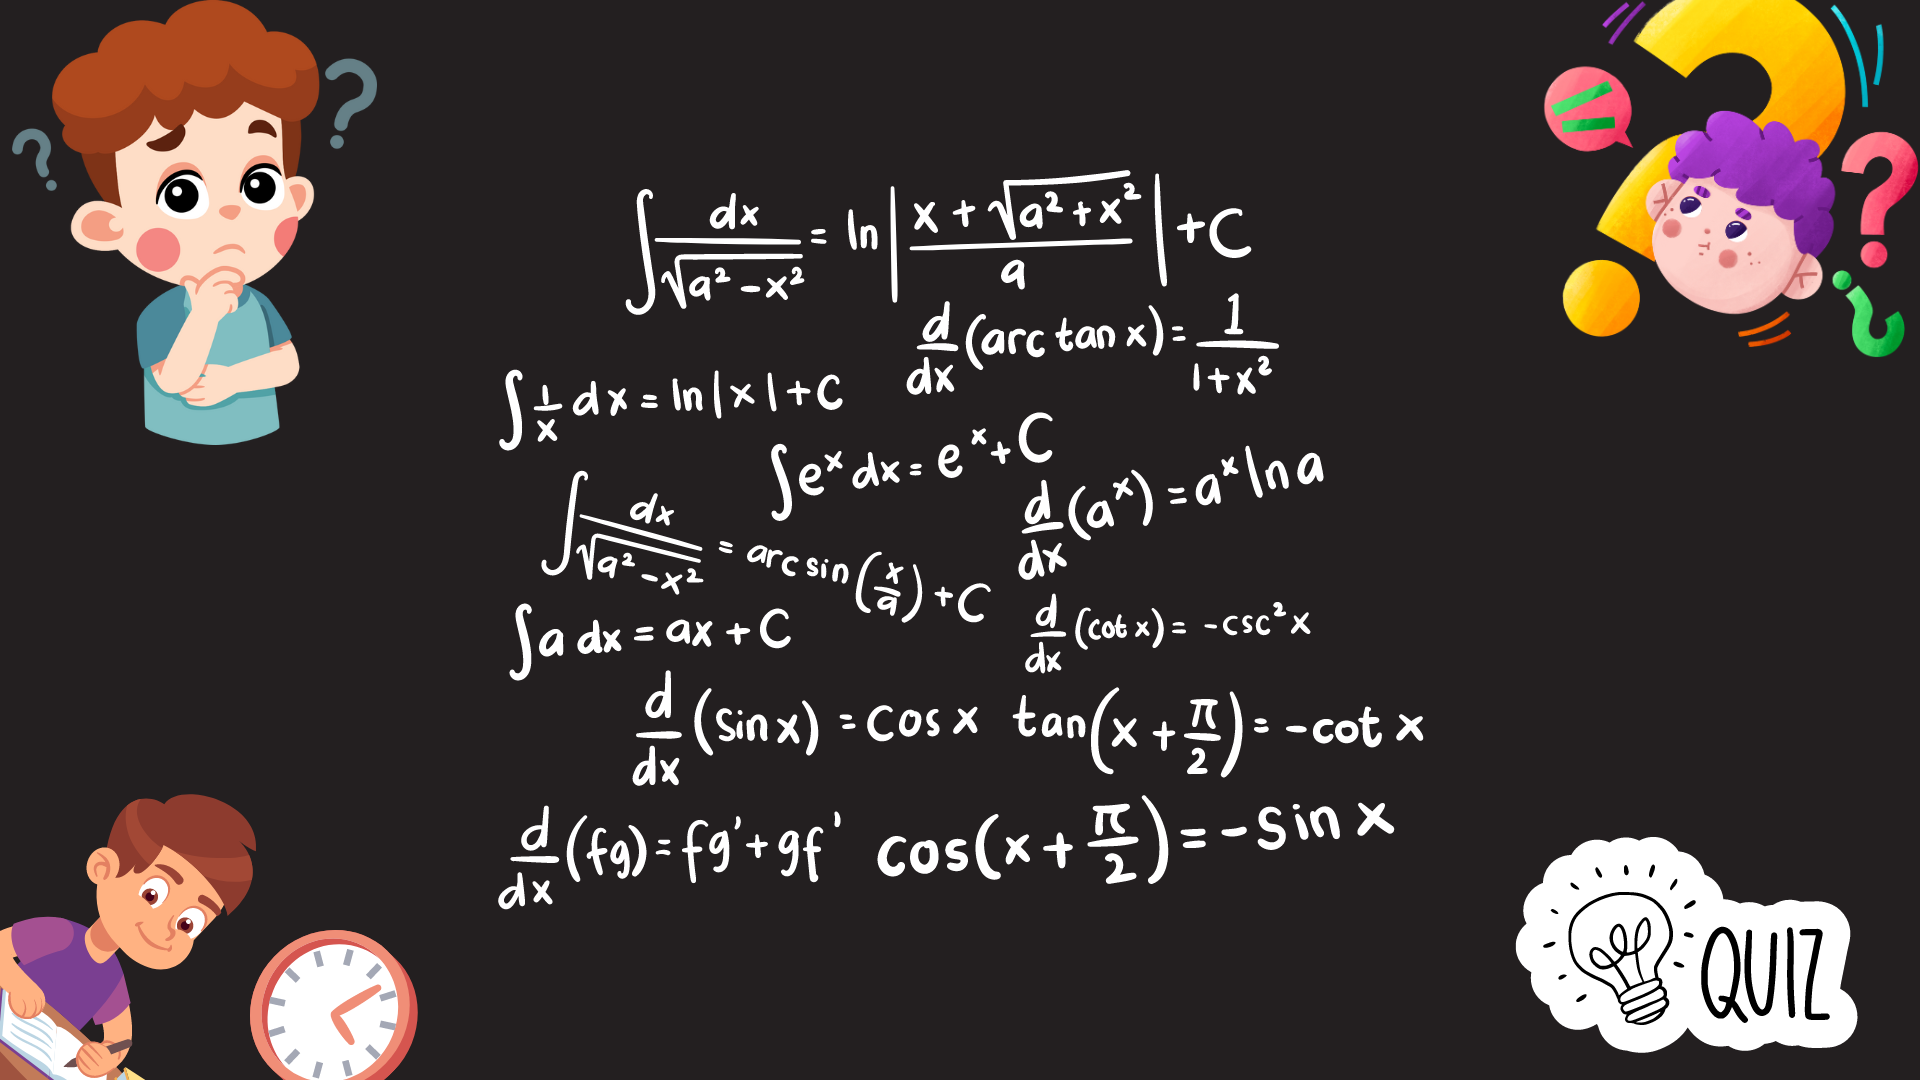 ∫ dx/√(a² − x²) = ln |(x + √(a² + x²))/a| + C
d/dx (arc tan x) = 1/(1 + x²)
∫ 1/x dx = ln |x| + C
∫ eˣ dx = eˣ + C
d/dx (aˣ) = aˣ ln a
∫ dx/√(a² − x²) = arc sin (x/a) + C
∫ a dx = ax + C
d/dx (cot x) = -csc² x
d/dx (sin x) = cos x
tan(x + π/2) = -cot x
d/dx (fg) = fg' + gf'
cos(x + π/2) = -sin x
QUIZ